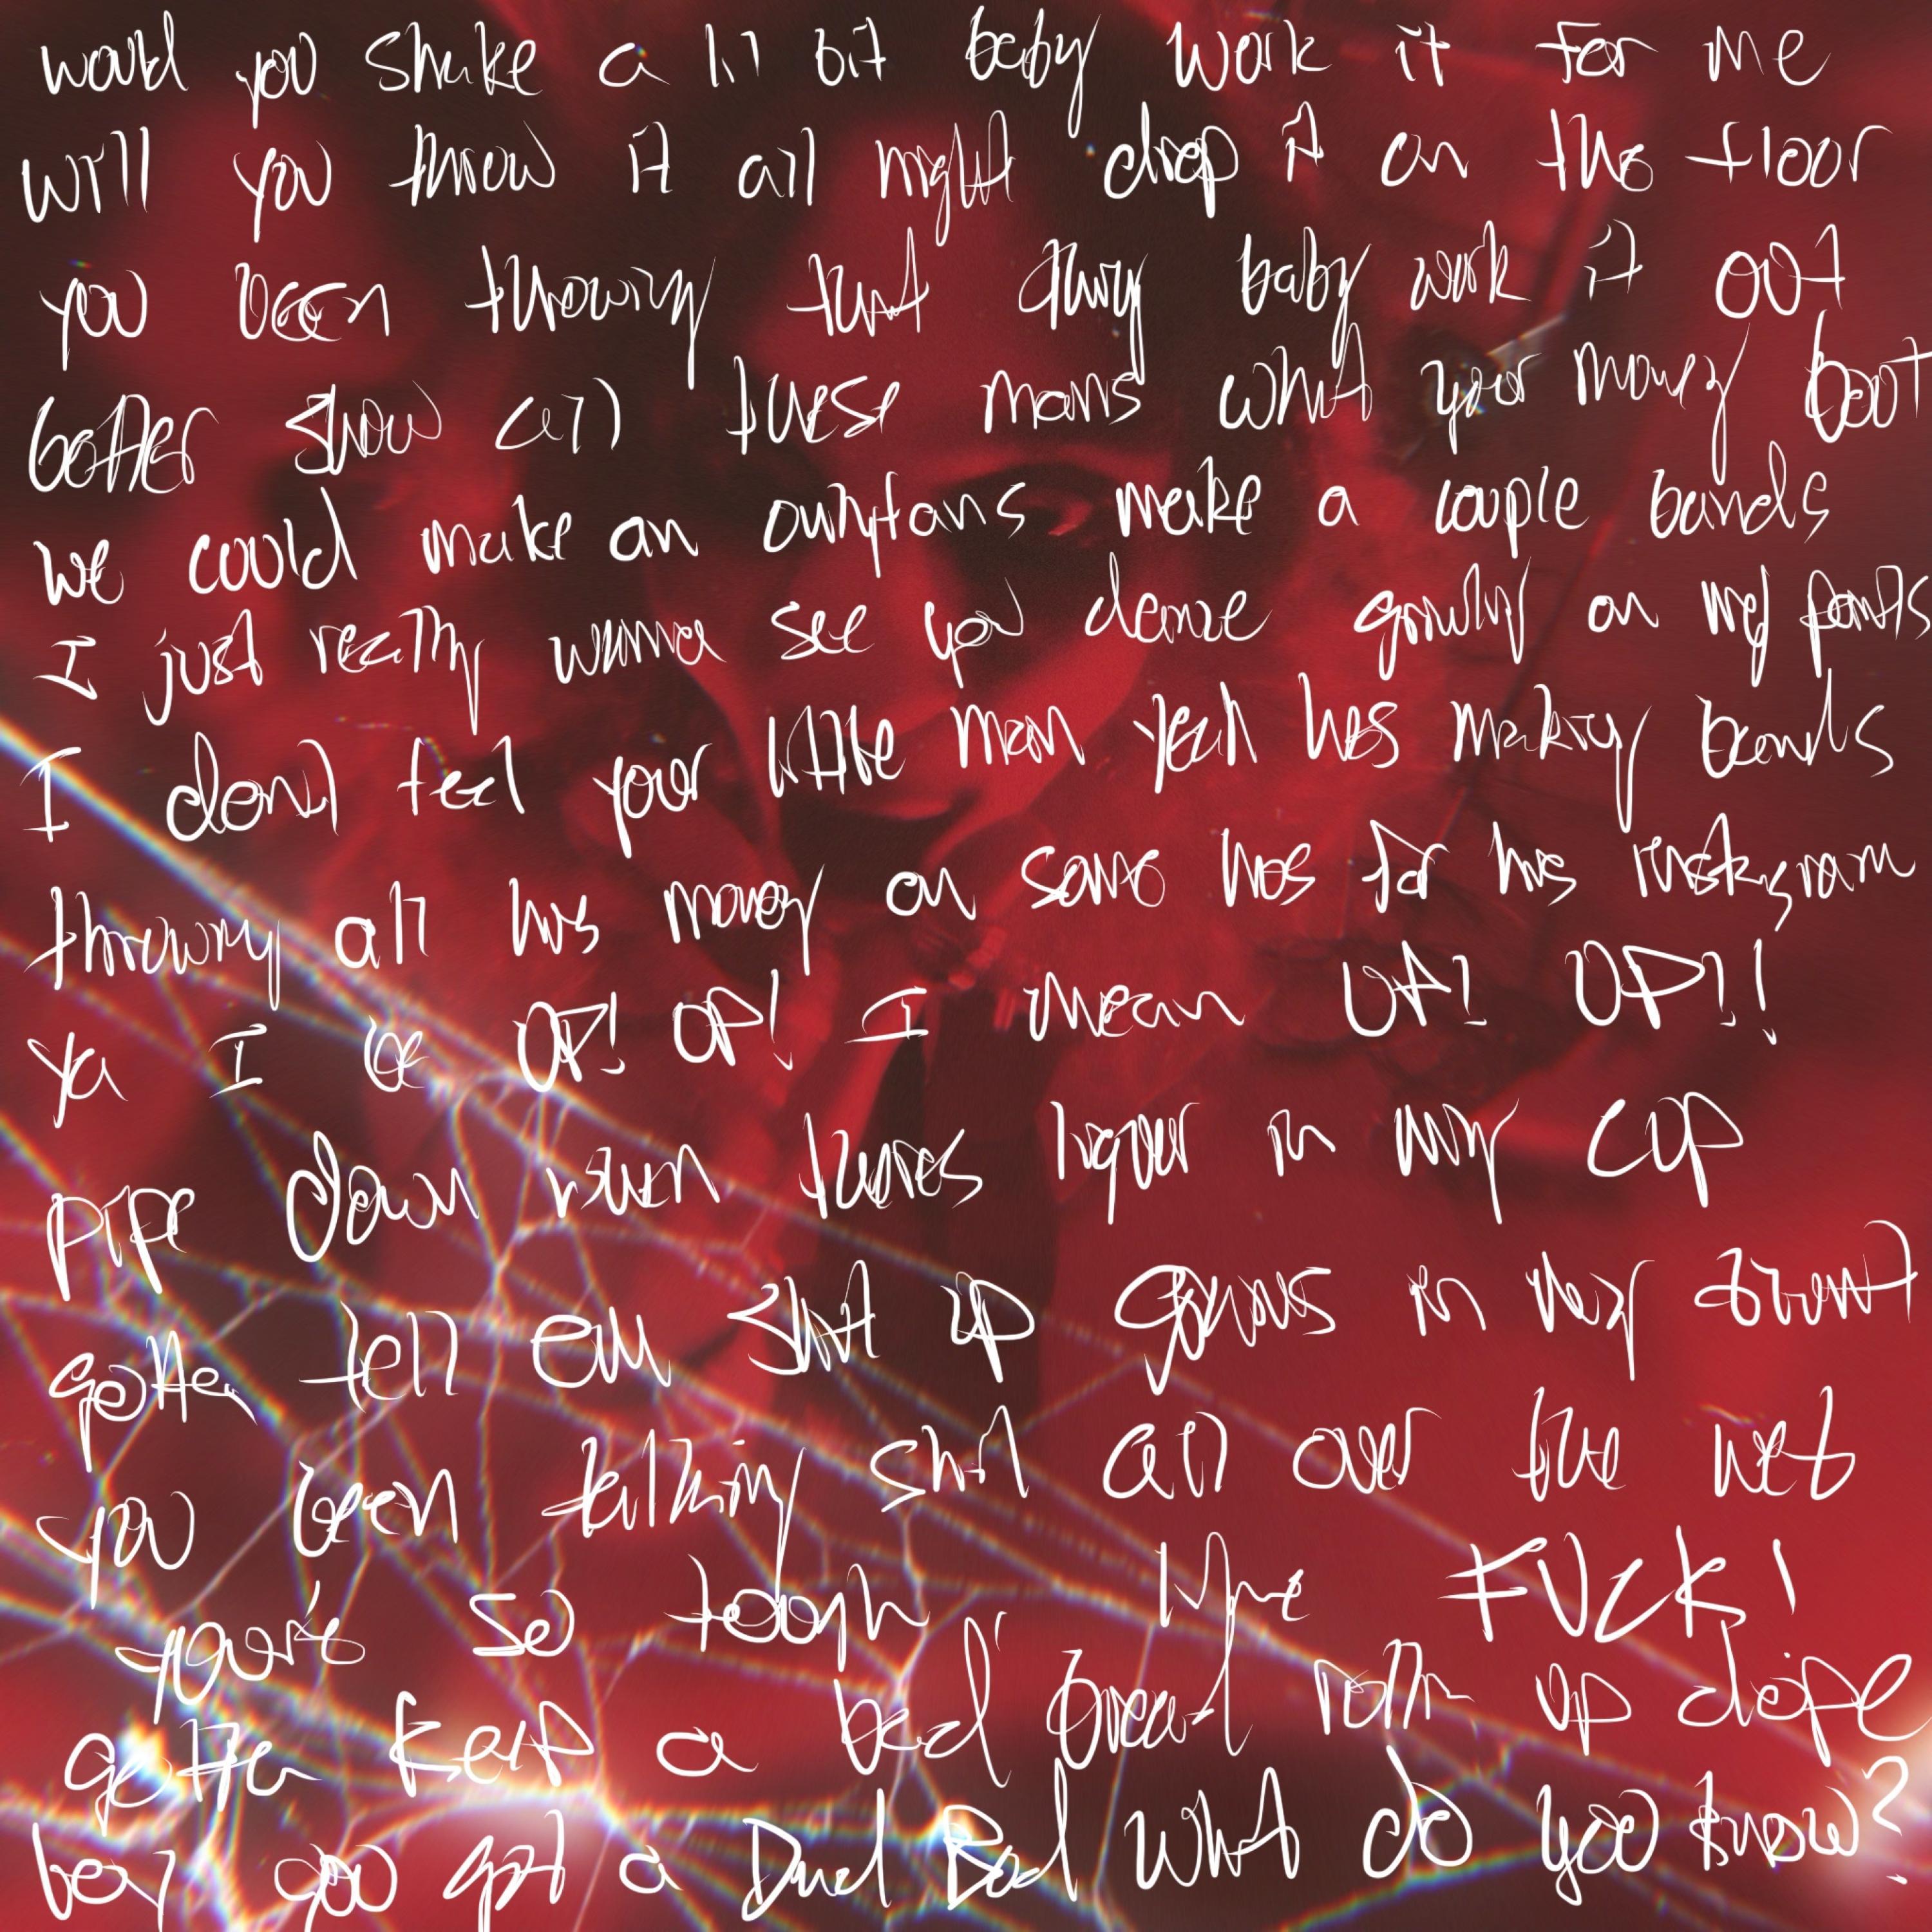 would you shake a lil bit baby work it for me
will you throw it all night drop it on the floor
you been throwing that thing baby work it out
better show all these mans what your money bout
we could make an onlyfans make a couple bands
I just really wanna see you dance on my pants
I don't feel your little man yeah hes making bands
throwing all his money on some hos for his instagram
Ya I be UP! UP! I mean UP! UP!!
pipe down when theres liquor in my cup
gotta tell em shut up in my
you been talking shit all over the net
your's so tough, like FUCK!
gotta keep a bad breat rollin up dope
boy you got a Dud Bod what do you know?